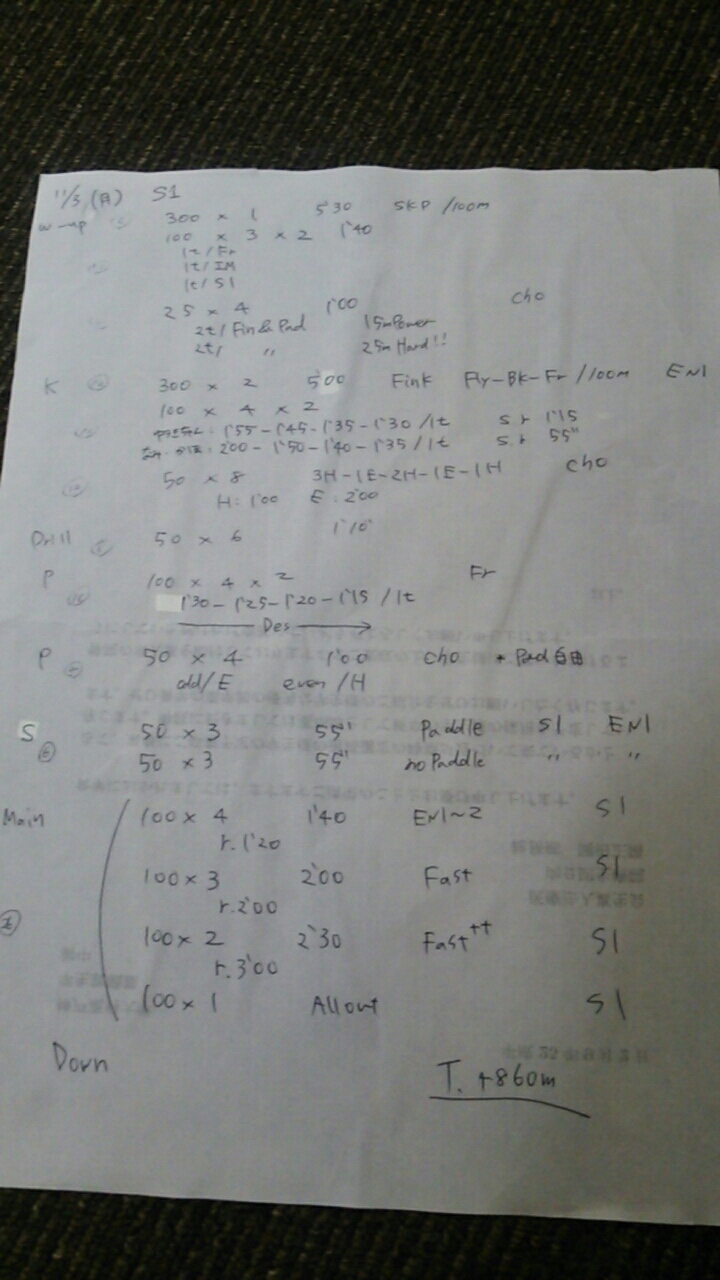 11/3 (月) S1
w-up 300 × 1 5'30 SKP /100m
100 × 3 × 2 1'40
1t/Fr
1t/IM
1t/S1
25 × 4 1'00 cho
2t/Fin&Pad 15mPower
2t/ 〃 25m Hard!!
K 300 × 2 5'00 Fink Fly-Bk-Fr //100m EN1
100 × 4 × 2
1'55-1'45-1'35-1'30 /1t s.r 1'15
2'00-1'50-1'40-1'35 /1t s.r 55"
50 × 8 3H-1E-2H-1E-1H cho
H: 1'00 E: 2'00
Drill 50 × 6 1'10"
P 100 × 4 × 2 Fr
1'30-1'25-1'20-1'15 /1t
Des
P 50 × 4 1'00 cho + Pad自由
odd/E even/H
S 50 × 3 55" Paddle S1 EN1
50 × 3 55" no Paddle 〃 〃
Main 100 × 4 1'40 EN1~2 S1
r.1'20
100 × 3 2'00 Fast S1
r.2'00
100 × 2 2'30 Fast++ S1
r.3'00
100 × 1 All out S1
Down
T. 4860m
平成25年9月2日